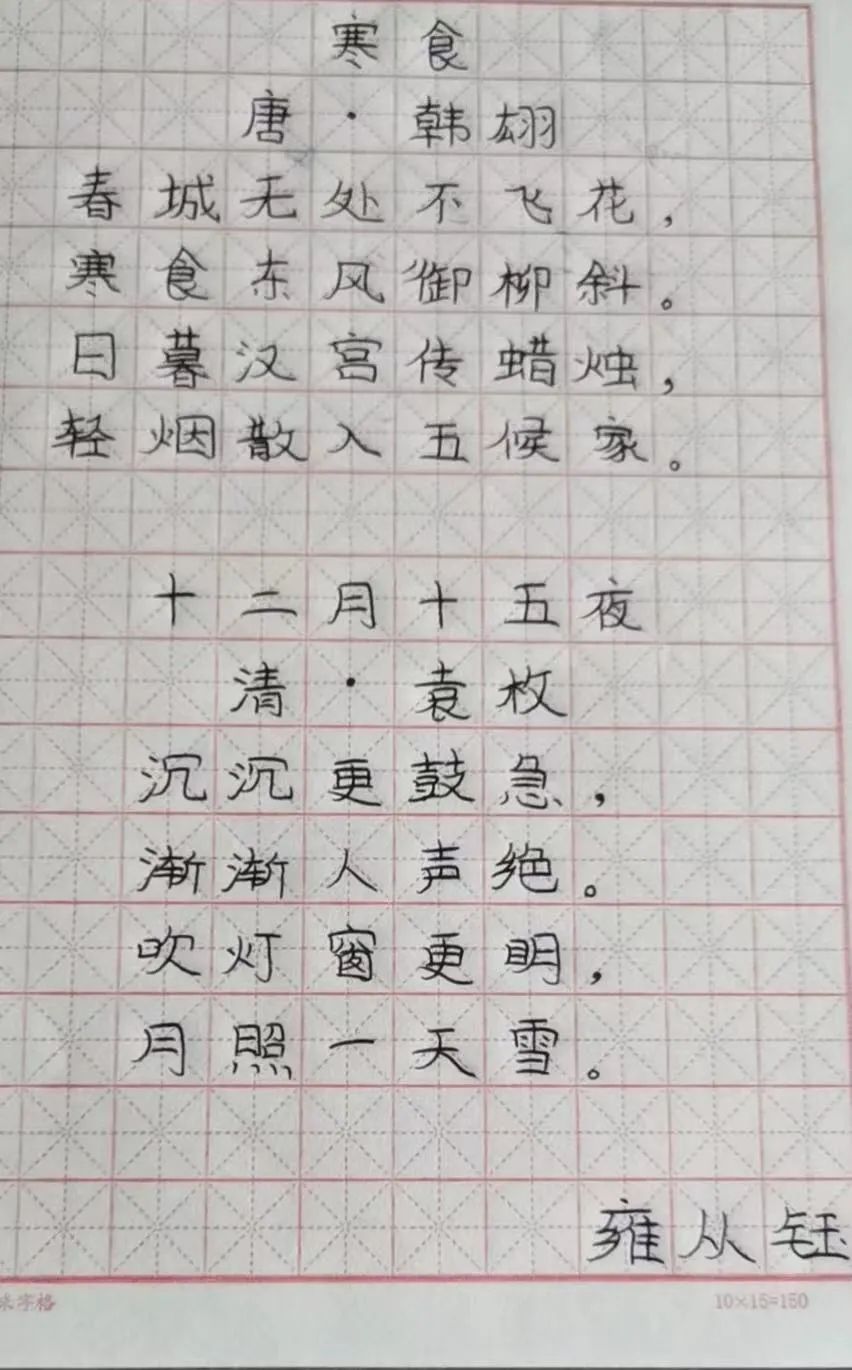 寒食
唐·韩翃
春城无处不飞花，
寒食东风御柳斜。
日暮汉宫传蜡烛，
轻烟散入五候家。
十二月十五夜
清·袁枚
沉沉更鼓急，
渐渐人声绝。
吹灯窗更明，
月照一天雪。
雍从钰
米字格 10×15=150